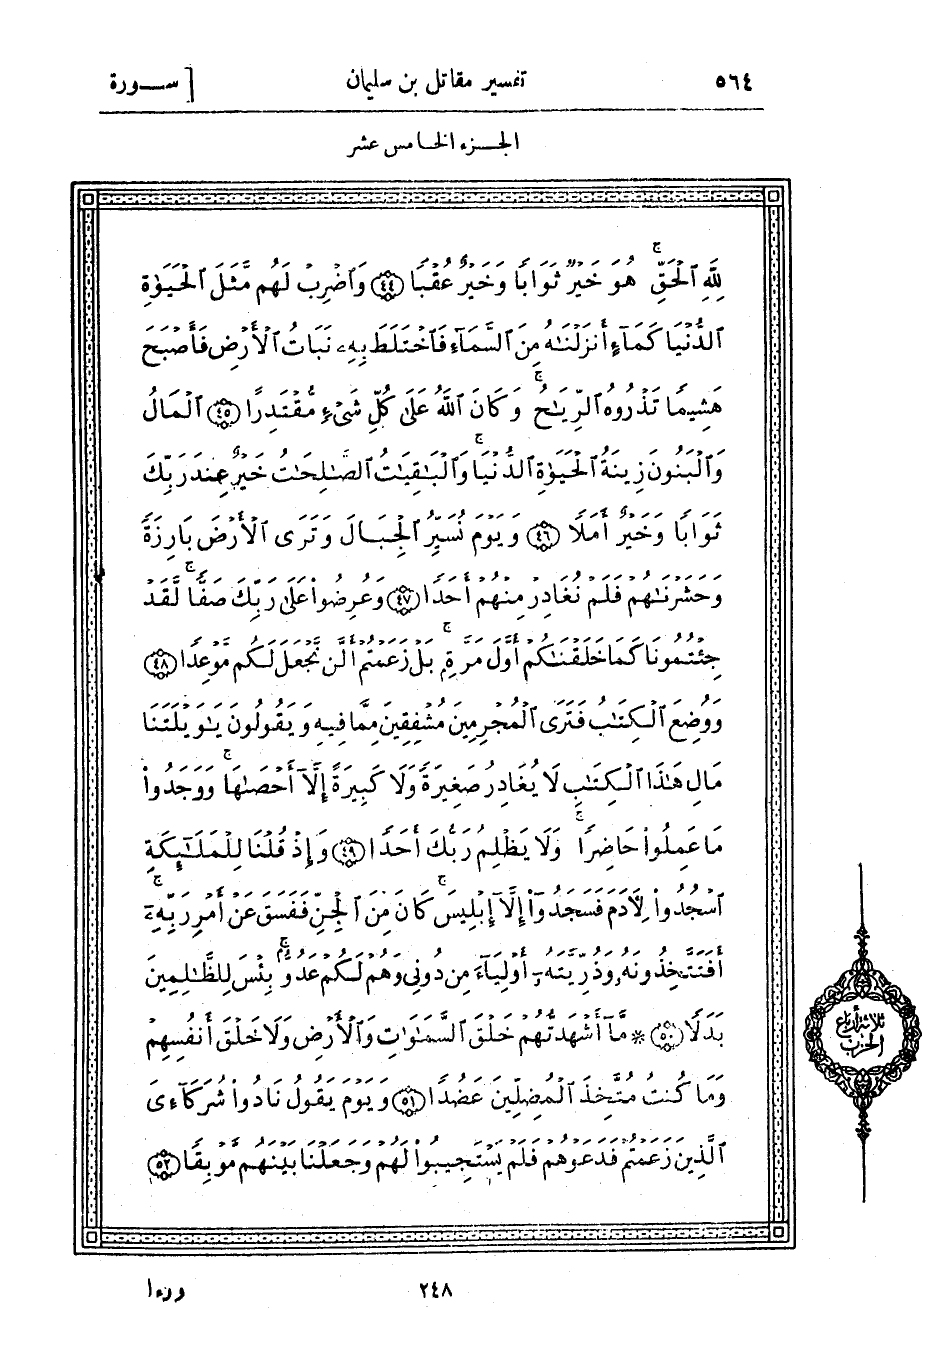 ٥٦٤
تفسير مقاتل بن سليمان
[ سـورة
الجزء الخامس عشر
لِلَّهِ ٱلْحَقِّۚ هُوَ خَيْرٌ ثَوَابًا وَخَيْرٌ عُقْبًا ﴿٤٤﴾ وَٱضْرِبْ لَهُم مَّثَلَ ٱلْحَيَوٰةِ
ٱلدُّنْيَا كَمَآءٍ أَنزَلْنَـٰهُ مِنَ ٱلسَّمَآءِ فَٱخْتَلَطَ بِهِۦ نَبَاتُ ٱلْأَرْضِ فَأَصْبَحَ
هَشِيمًا تَذْرُوهُ ٱلرِّيَـٰحُۚ وَكَانَ ٱللَّهُ عَلَىٰ كُلِّ شَىْءٍ مُّقْتَدِرًا ﴿٤٥﴾ ٱلْمَالُ
وَٱلْبَنُونَ زِينَةُ ٱلْحَيَوٰةِ ٱلدُّنْيَاۚ وَٱلْبَـٰقِيَـٰتُ ٱلصَّـٰلِحَـٰتُ خَيْرٌ عِندَ رَبِّكَ
ثَوَابًا وَخَيْرٌ أَمَلًا ﴿٤٦﴾ وَيَوْمَ نُسَيِّرُ ٱلْجِبَالَ وَتَرَى ٱلْأَرْضَ بَارِزَةً
وَحَشَرْنَـٰهُمْ فَلَمْ نُغَادِرْ مِنْهُمْ أَحَدًا ﴿٤٧﴾ وَعُرِضُوا۟ عَلَىٰ رَبِّكَ صَفًّاۚ لَّقَدْ
جِئْتُمُونَا كَمَا خَلَقْنَـٰكُمْ أَوَّلَ مَرَّةٍۚ بَلْ زَعَمْتُمْ أَلَّن نَّجْعَلَ لَكُم مَّوْعِدًا ﴿٤٨﴾
وَوُضِعَ ٱلْكِتَـٰبُ فَتَرَى ٱلْمُجْرِمِينَ مُشْفِقِينَ مِمَّا فِيهِ وَيَقُولُونَ يَـٰوَيْلَتَنَا
مَالِ هَـٰذَا ٱلْكِتَـٰبِ لَا يُغَادِرُ صَغِيرَةً وَلَا كَبِيرَةً إِلَّآ أَحْصَىٰهَاۚ وَوَجَدُوا۟
مَا عَمِلُوا۟ حَاضِرًاۗ وَلَا يَظْلِمُ رَبُّكَ أَحَدًا ﴿٤٩﴾ وَإِذْ قُلْنَا لِلْمَلَـٰٓئِكَةِ
ٱسْجُدُوا۟ لِـَٔادَمَ فَسَجَدُوٓا۟ إِلَّآ إِبْلِيسَۚ كَانَ مِنَ ٱلْجِنِّ فَفَسَقَ عَنْ أَمْرِ رَبِّهِۦٓۚ
أَفَتَتَّخِذُونَهُۥ وَذُرِّيَّتَهُۥٓ أَوْلِيَآءَ مِن دُونِى وَهُمْ لَكُمْ عَدُوٌّۢۚ بِئْسَ لِلظَّـٰلِمِينَ
بَدَلًا ﴿٥٠﴾ * مَّآ أَشْهَدتُّهُمْ خَلْقَ ٱلسَّمَـٰوَٰتِ وَٱلْأَرْضِ وَلَا خَلْقَ أَنفُسِهِمْ
وَمَا كُنتُ مُتَّخِذَ ٱلْمُضِلِّينَ عَضُدًا ﴿٥١﴾ وَيَوْمَ يَقُولُ نَادُوا۟ شُرَكَآءِىَ
ٱلَّذِينَ زَعَمْتُمْ فَدَعَوْهُمْ فَلَمْ يَسْتَجِيبُوا۟ لَهُمْ وَجَعَلْنَا بَيْنَهُم مَّوْبِقًا ﴿٥٢﴾
ثلاثة أرباع
الحزب
٢٤٨
ورءا